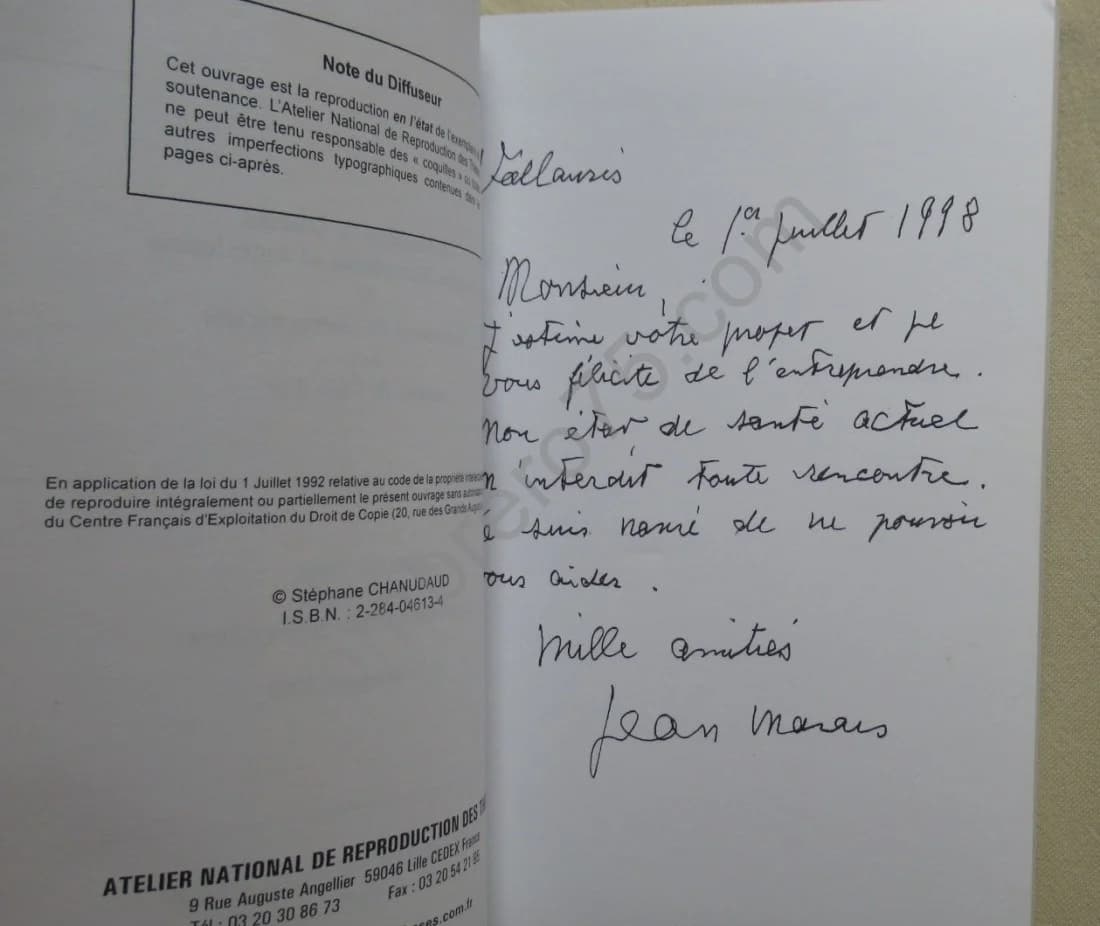 Note du Diffuseur
Cet ouvrage est la reproduction en l'état de l'exemplaire
soutenance. L'Atelier National de Reproduction des
ne peut être tenu responsable des « coquilles » ou
autres imperfections typographiques contenues dans
pages ci-après.
En application de la loi du 1 Juillet 1992 relative au code de la propriété
de reproduire intégralement ou partiellement le présent ouvrage sans
du Centre Français d'Exploitation du Droit de Copie (20, rue des Grands
© Stéphane CHANUDAUD
I.S.B.N. : 2-284-04613-4
ATELIER NATIONAL DE REPRODUCTION DES
9 Rue Auguste Angellier 59046 Lille CEDEX France
Tél : 03 20 30 86 73 Fax : 03 20 54 21
Vallauris
le 1er juillet 1998
Monsieur,
J'estime votre projet et je
vous félicite de l'entreprendre.
Mon état de santé actuel
m'interdit toute rencontre.
é suis navré de ne pouvoir
ous aider.
Mille amitiés
Jean Marais